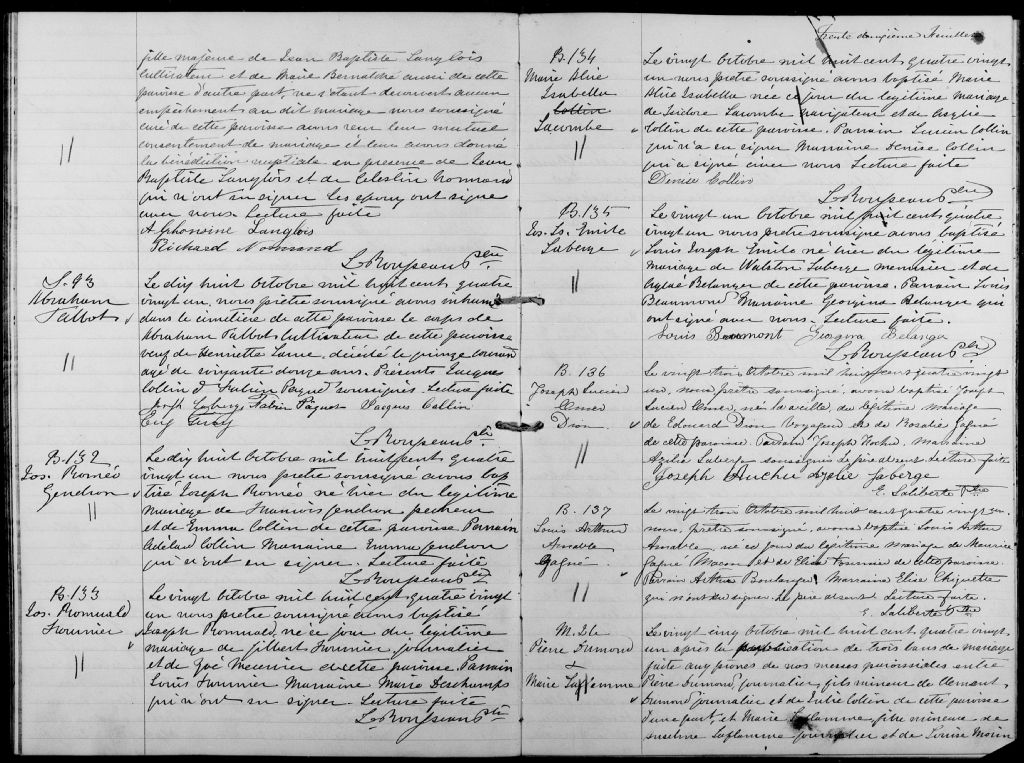 fille majeure de Jean Baptiste Langlois
cultivateur et de Marie Bernatchè aussi de cette
paroisse d'autre part, ne s'étant découvert aucun
empêchement au dit mariage nous soussigné
curé de cette paroisse avons reçu leur mutuel
consentement de mariage et leur avons donné
la bénédiction nuptiale en presence de Jean
Baptiste Langlois et de Celestin Normand
qui n'ont su signer les epoux ont signé
avec nous. Lecture faite
Alphonsine Langlois
Richard Normand
L. Rousseau Ptre
S. 93
Abraham
Talbot
Le dix huit Octobre mil huit cent quatre
vingt un, nous prêtre soussigné avons inhumé
dans le cimetière de cette paroisse le corps de
Abraham Talbot cultivateur de cette paroisse
veuf de Henriette Lame, décédé le quinze courant
agé de soixante douze ans. Présents Jacques
Collin & Fabien Paquet soussignés Lecture faite
Fabien Pâquet Jacques Collin
L. Rousseau Ptre
B. 132
Jos. Roméo
Gendron
Le dix huit Octobre mil huit cent quatre
vingt un nous prêtre soussigné avons bap
tisé Joseph Roméo né hier du légitime
mariage de Francois Gendron pecheur
et de Emma Collin de cette paroisse Parrain
Adélard Collin Marraine Emma Gendron
qui n'ont su signer. Lecture faite
L. Rousseau Ptre
B. 133
Jos. Romuald
Fournier
Le vingt Octobre mil huit cent quatre vingt
un nous prêtre soussigné avons baptisé
Joseph Romuald, né ce jour du légitime
mariage de Gilbert Fournier journalier
et de Zoé Mercier de cette paroisse Parrain
Louis Fournier Marraine Marie Deschamps
qui n'ont su signer. Lecture faite
L. Rousseau Ptre
Trente deuxième Feuillet
B. 134
Marie Alice
Isabella
Collin
Lacombe
Le vingt Octobre mil huit cent quatre vingt
un nous prêtre soussigné avons baptisé Marie
Alice Isabella née ce jour du légitime mariage
de Isidore Lacombe navigateur et de
Collin de cette paroisse. Parrain Lucien Collin
qui n'a su signer Marraine Denise Collin
qui a signé avec nous Lecture faite
Denise Collin
L. Rousseau Ptre
B. 135
Jos. Ls. Emile
Laberge
Le vingt un Octobre mil huit cent quatre
vingt un nous prêtre soussigné avons baptisé
Louis Joseph Emile né hier du légitime
mariage de Walston Laberge menuisier et de
Belanger de cette paroisse. Parrain Louis
Beaumond Marraine Georgina Belanger qui
ont signé avec nous. Lecture faite.
Louis Beaumont Georgina Belanger
L. Rousseau Ptre
B. 136
Joseph Lucien
Elmer
Dion
Le vingt trois Octobre mil huit cent quatre vingt
un, nous prêtre soussigné, avons baptisé Joseph
Lucien Elmer, né la veille du légitime mariage
de Edouard Dion Voyageur et de Rosalie Gagné
de cette paroisse. Parrain Joseph Marraine
Azélie Laberge soussignés le père absent Lecture faite
Joseph Azélie Laberge
E. Laliberté Ptre
B. 137
Louis Arthur
Amable
Gagné
Le vingt trois Octobre mil huit cent quatre vingt un,
nous, prêtre soussigné, avons baptisé Louis Arthur
Amable, né ce jour du légitime mariage de Maurice
Gagné Maçon et de Elise Fournier de cette paroisse.
Parrain Arthur Boulanger, Marraine Elise Chiquette
qui n'ont su signer. Le père absent Lecture faite.
E. Laliberté Ptre
M.
Pierre Dumond
&
Marie Laflamme
Le vingt cinq Octobre mil huit cent quatre vingt
un après la publication de trois bans de mariage
faite aux prones de nos messes paroissiales entre
Pierre Dumond, journalier, fils mineur de Clement
Dumond journalier et de Julie Collin de cette paroisse
d'une part, et Marie Laflamme, fille mineure de
Anselme Laflamme journalier et de Louise Morin